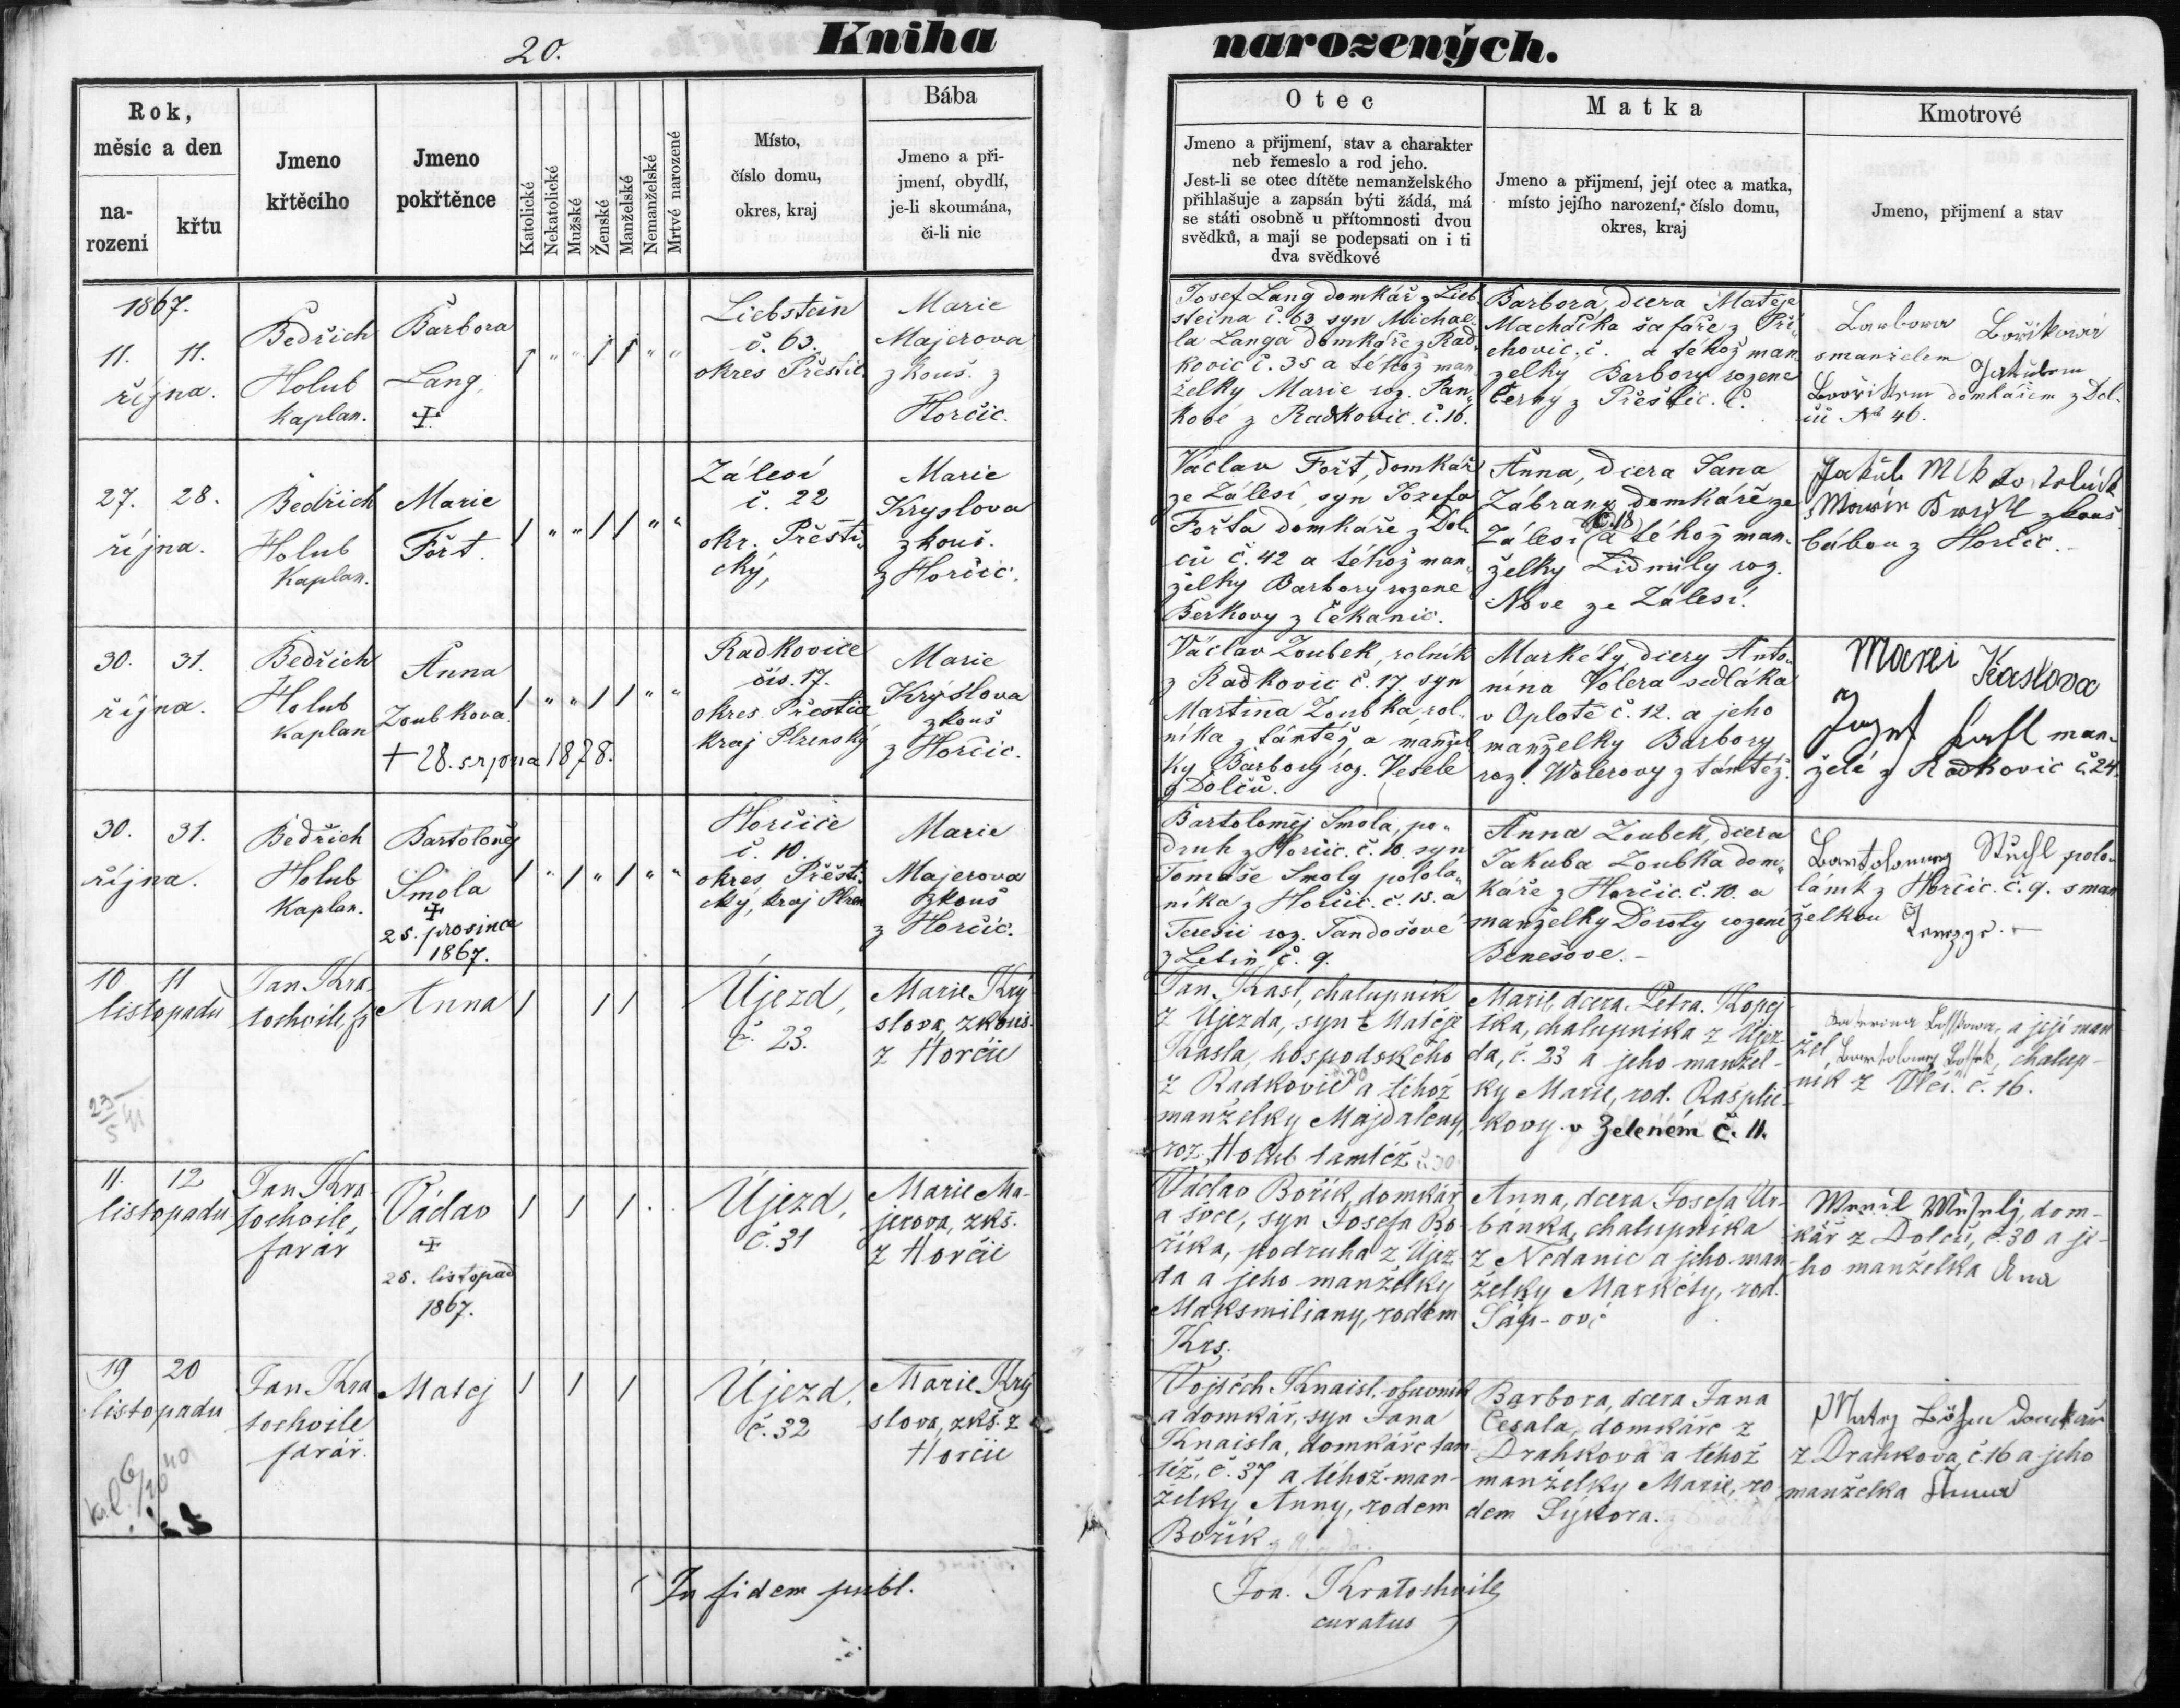 20.
Kniha
narozených.
Rok,
měsic a den
na-
rození
křtu
Jmeno
křtěcího
Jmeno
pokřtěnce
Katolické
Nekatolické
Mužské
Ženské
Manželské
Nemanželské
Mrtvé narozené
Místo,
číslo domu,
okres, kraj
Bába
Jmeno a při-
jmení, obydlí,
je-li skoumána,
či-li nic
Otec
Jmeno a přijmení, stav a charakter
neb řemeslo a rod jeho.
Jest-li se otec dítěte nemanželského
přihlašuje a zapsán býti žádá, má
se státi osobně u přítomnosti dvou
svědků, a mají se podepsati on i ti
dva svědkové
Matka
Jmeno a přijmení, její otec a matka,
místo jejího narození, číslo domu,
okres, kraj
Kmotrové
Jmeno, přijmení a stav
1867.
11. 11.
října.
Bedřich
Holub
Kaplan.
Barbora
Lang,
Liebstein
č. 63.
okres Přeštic.
Marie
Majerova
zkouš. z
Horčic.
Josef Lang domkář z Lieb-
steina č. 63 syn Michae-
la Langa domkáře z Rad-
kovic č. 35 a téhož man-
želky Marie roz. Pan-
kové z Radkovic. č. 16.
Barbora, dcera Matěje
Macháčka šafáře z Při-
chovic. č. a téhož man-
želky Barbory rozene
Černý z Přeštic. č.
Barbora Boříkowá
smanželem Jakubem
Bořikem domkářem z Dol-
čů No 46.
27. 28.
října.
Bedřich
Holub
Kaplan.
Marie
Fořt.
Zálesí
č. 22
okr. Přešti-
cký,
Marie
Kryslova
zkouš.
z Horčic.
Václav Fořt, domkář
ze Zálesí, syn Jozefa
Fořta domkáře z Dol-
čů č. 42 a téhož man-
želky Barbory rozene
Berkovy z Čekanic.
Anna, dcera Jana
Zábrany domkáře ze
Zálesí (č. 18) a téhož man-
želky Lidmily roz.
Nove ze Zálesí.
bábou z Horčic.
30. 31.
října.
Bedřich
Holub
Kaplan
Anna
Zoubkova.
+ 28. srpna 1878.
Radkovice
čís. 17.
okres Přeštice
Kraj Plzenský
Marie
Krýslova
zkouš
z Horčic.
Václav Zoubek, rolník
z Radkovic č. 17. syn
Martina Zoubka, rol-
níka z tántéž a manžel
ky Barbory roz. Vesele
z Dolčů.
Markéty dcery Anto-
nína Volera sedláka
v Oplotě č. 12. a jeho
manželky Barbory
roz. Wolerovy z tántéž.
Marei Kaslova
Jozef Kasl man-
želé z Radkovic č. 24.
30. 31.
října.
Bedřich
Holub
Kaplan.
Bartoloměj
Smola
25. prosince
1867.
Horčice
č. 10.
okres Přešti-
cký, kraj Plzen
Marie
Majerova
zkouš
z Horčic.
Bartoloměj Smola, po-
druh z Horčic. č. 10. syn
Tomáše Smoly polola-
níka z Horčic. č. 15. a
Teresii roz. Tandošové
z Letin č. 9.
Anna Zoubek, dcera
Jakuba Zoubka dom-
káře z Horčic. č. 10. a
manželky Doroty rozené
Benešove.-
Bartolomey polo-
láník z Horčic. č. 9. s man
želkou
10 11
listopadu
Jan Kra-
tochvile, f.
Anna
Újezd,
č. 23.
Marie Krý-
slova, zkouš.
z Horčic
Jan Kasl, chalupník
z Újezda, syn Matěje
Kasla, hospodského
z Radkovic č. 30 a téhož
manželky Majdaleny,
roz. Holub tamtéž č. 30
Marie, dcera Petra Kopej-
tka, chalupníka z Újez
da, č. 23 a jeho manžel-
ky Marie, rod. Rašplič-
kovy v Zeleném č. 11.
a její man
žel chalup-
ník z Vlčí. č. 16.
11. 12
listopadu
Jan Kra-
tochvile,
farář
Václav
25. listopad
1867.
Újezd,
č. 31
Marie Ma-
jerova, zkš.
z Horčic
Václav Bořík, domkář
a švec, syn Josefa Bo-
říka, podruha z Újez-
da a jeho manželky
Maksmiliany, rodem
Krs.
Anna, dcera Josefa Ur-
bánka, chalupníka
z Nedanic a jeho man-
želky Markéty, rod.
dom-
kář z Dolců, č. 30 a je-
ho manželka Ana
19 20
listopadu
Jan Kra
tochvile
farář.
Matej
Újezd,
č. 32
Marie Krý
slova, zkš. z
Horčic
Vojtěch Knaisl, obuvník
a domkář, syn Jana
Knaisla, domkáře tam-
též, č. 37 a téhož man-
želky Anny, rodem
Bořík
Barbora, dcera Jana
Cesala, domkáře z
Drahkova a téhož
manželky Marie, ro
dem Sýkora.
Matej Böhm domkář
z Drahkova, č. 16 a jeho
manželka Anna
In fidem publ.
Joa. Kratochvile
curatus